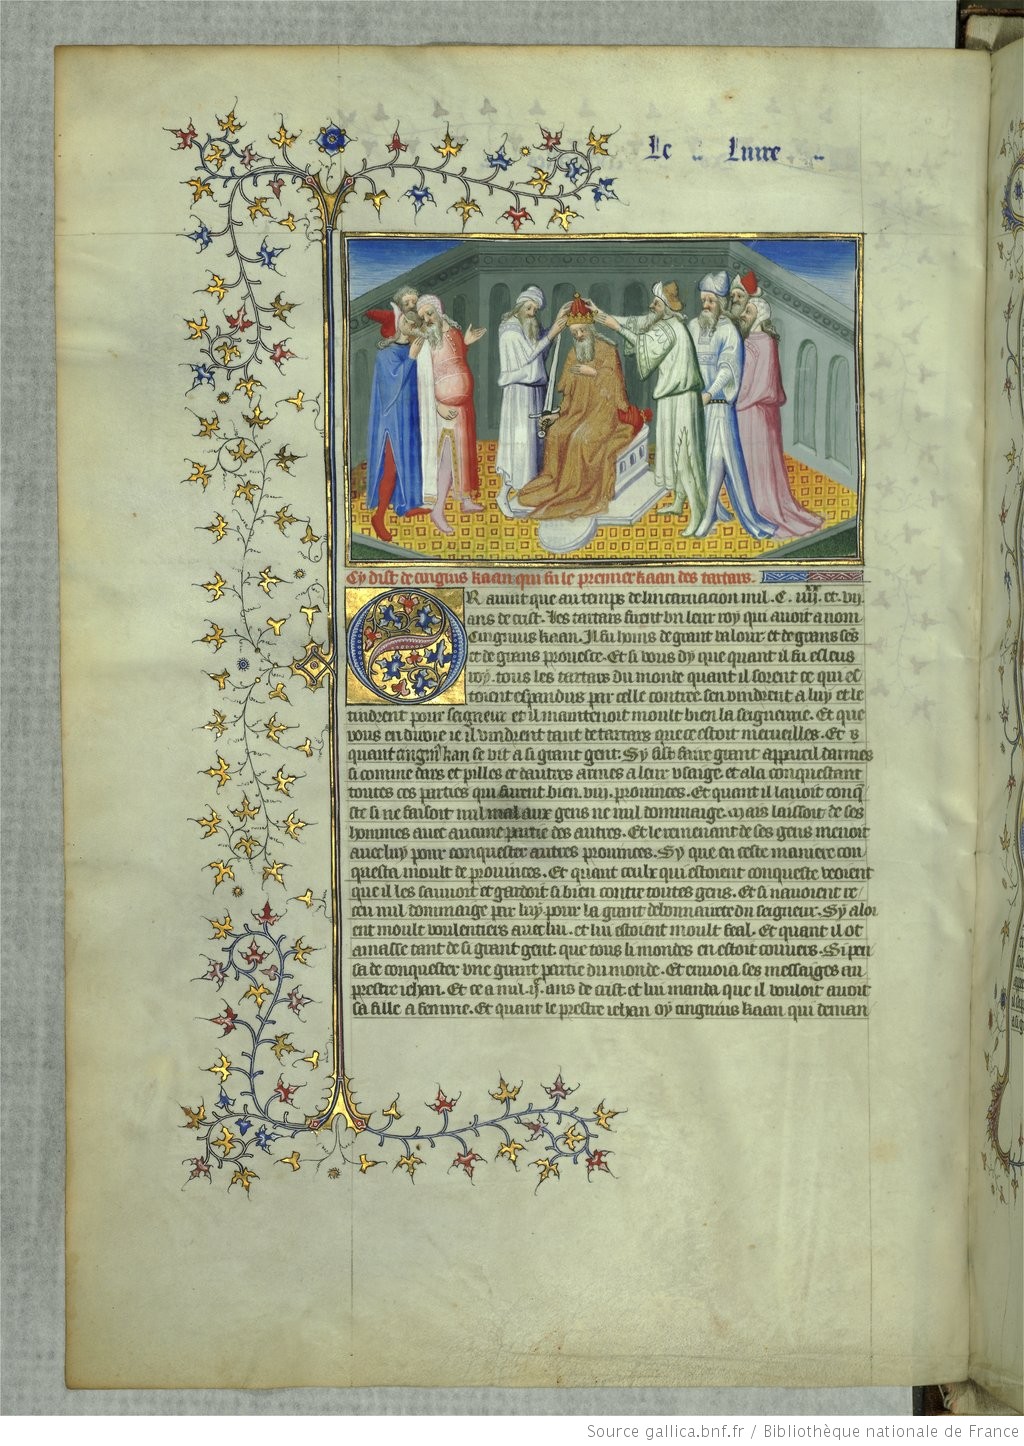 Le Liure
Cy dist de cinguis kaan qui fu le premier kaan des tartars.
OR auint que au temps de lincarnacion mil. C. iiijxx. et. vij.
ans de crist. Les tartars firent vn leur roy qui auoit a nom
Cinguis kaan. Il fu homs de grant valour et de grans ses
et de grans prouesce. Et si vous dy que quant il fu esleus
roy. tous les tartars du monde quant il sorent ce qui es
toient espandus par celle contree sen vindrent a luy et le
tindrent pour seigneur et il maintenoit moult bien la seigneurie. Et que
vous en diroie ie il vindrent tant de tartars que ce estoit merueilles. Et
quant kan se vit a si grant gent. Sy fist faire grant appareil darmes
si comme dars et pilles et dautres armes a leur vsaige. et ala conquestant
toutes ces parties qui furent bien. viij. prouinces. Et quant il lauoit conq
ste si ne faisoit nul mal aux gens ne nul dommaige. mais laissoit de ses
hommes auec aucune partie des autres. Et le remenant de ses gens menoit
auec luy pour conquester autres prouinces. Sy que en ceste maniere con
questa moult de prouinces. Et quant ceulx qui estoient conqueste veoient
que il les sauuoit et gardoit si bien contre toutes gens. Et si nauoient re
ceu nul dommaige par luy pour la grant debonnairete du seigneur. Sy aloi
ent moult voulentiers auec lui. et lui estoient moult feal. Et quant il ot
amasse tant de si grant gent. que tous li mondes en estoit couuers. Si pen
sa de conquester vne grant partie du monde. Et enuoia ses messaiges au
prestre iehan. Et ce a mil. ijc. ans de crist et lui manda que il vouloit auoir
sa fille a femme. Et quant le prestre iehan oy cinguis kaan qui deman
Source gallica.bnf.fr / Bibliothèque nationale de France